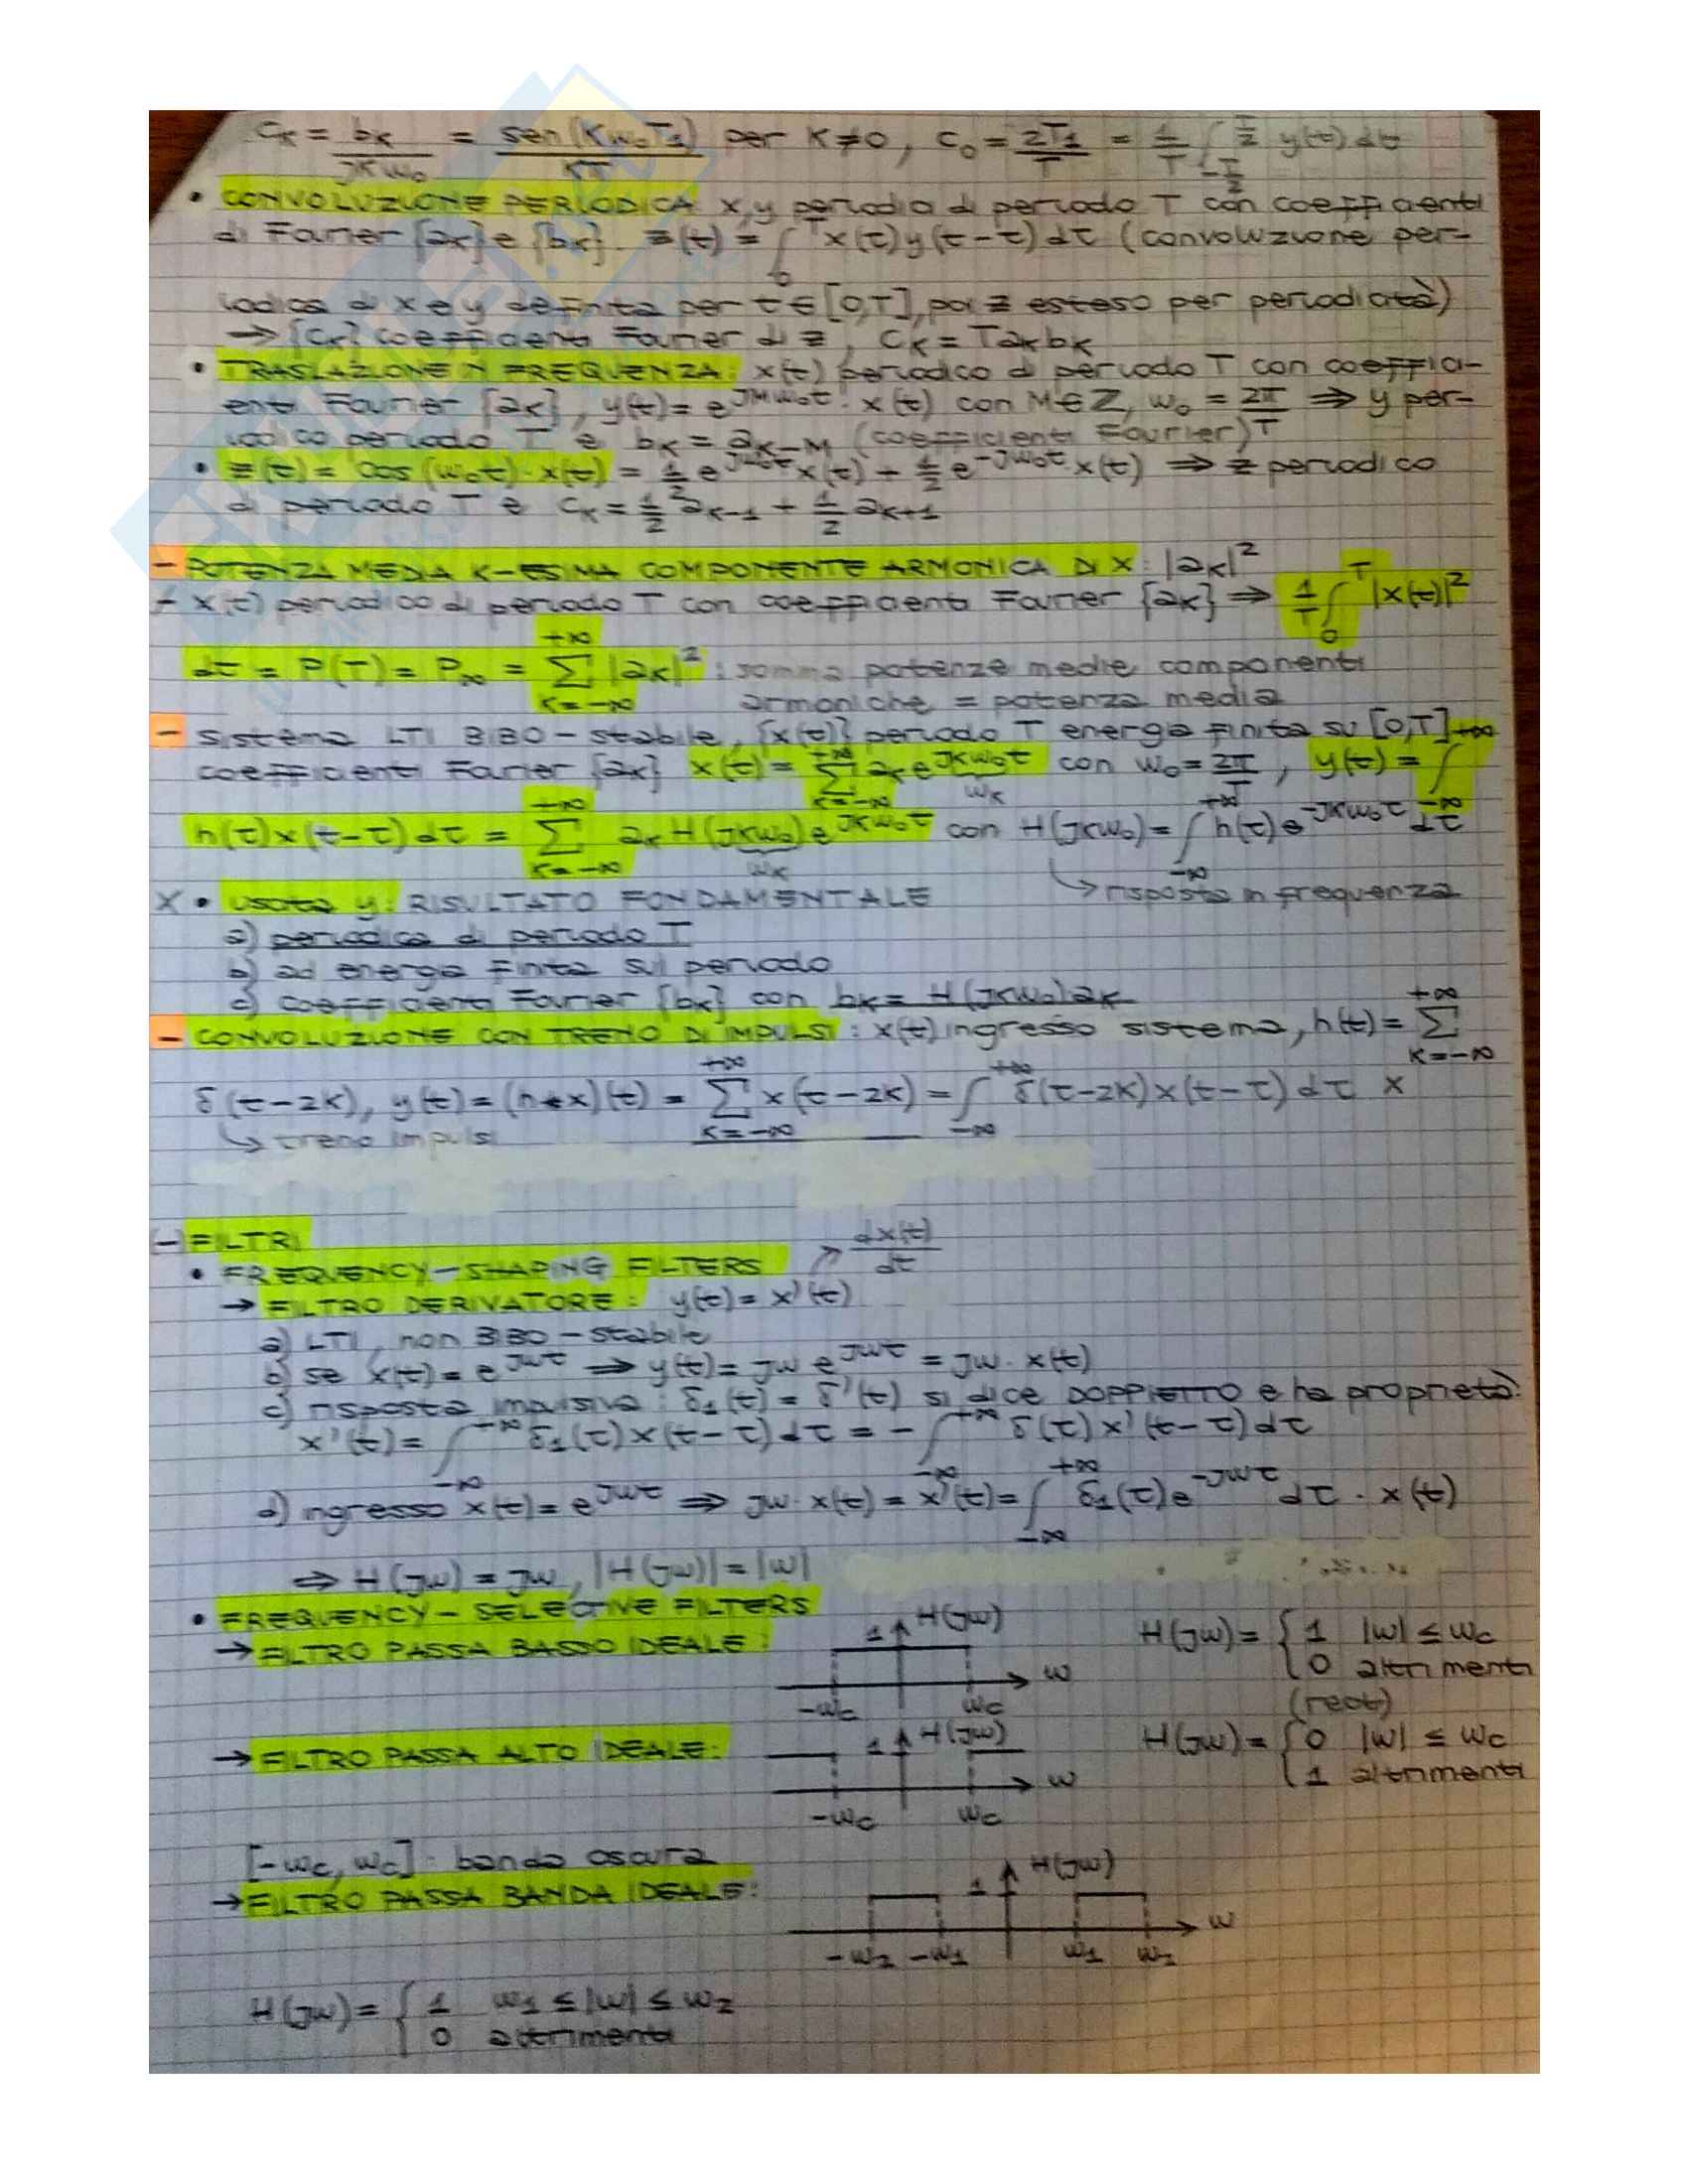 cₖ = bₖ/(jkω₀) = sen(kω₀T₁)/(kπ) per k≠0, c₀ = 2T₁/T = 1/T ∫_{-T/2}^{T/2} y(t) dt
• CONVOLUZIONE PERIODICA: x,y periodici di periodo T con coefficienti
di Fourier {aₖ} e {bₖ}. z(t) = ∫_0^T x(τ)y(t-τ)dτ (convoluzione per-
iodica di x e y definita per t∈[0,T], poi z esteso per periodicità)
⇒ {cₖ} coefficienti Fourier di z, cₖ = Taₖbₖ
• TRASLAZIONE IN FREQUENZA: x(t) periodico di periodo T con coeffici-
enti Fourier {aₖ}, y(t) = e^{jMω₀t}·x(t) con M∈Z, ω₀ = 2π/T ⇒ y per-
iodico periodo T e bₖ = a_{k-M} (coefficienti Fourier)
• z(t) = cos(ω₀t)·x(t) = 1/2 e^{jω₀t}x(t) + 1/2 e^{-jω₀t}x(t) ⇒ z periodico
di periodo T e cₖ = 1/2 a_{k-1} + 1/2 a_{k+1}
- POTENZA MEDIA K-ESIMA COMPONENTE ARMONICA DI X: |aₖ|²
- x(t) periodico di periodo T con coefficienti Fourier {aₖ} ⇒ 1/T ∫_0^T |x(t)|²
dt = P(T) = P∞ = Σ_{k=-∞}^{+∞} |aₖ|²: somma potenze medie componenti
armoniche = potenza media
- sistema LTI BIBO-stabile, {x(t)} periodo T energia finita su [0,T]
coefficienti Fourier {aₖ} x(t) = Σ_{k=-∞}^{+∞} aₖe^{jkω₀t} con ω₀ = 2π/T, y(t) = ∫_{-∞}^{+∞}
ωₖ
h(τ)x(t-τ)dτ = Σ_{k=-∞}^{+∞} aₖH(jkω₀)e^{jkω₀t} con H(jkω₀) = ∫_{-∞}^{+∞} h(τ)e^{-jkω₀τ}dτ
ωₖ
↳ risposta in frequenza
X • uscita y: RISULTATO FONDAMENTALE
a) periodica di periodo T
b) ad energia finita sul periodo
c) coefficienti Fourier {bₖ} con bₖ = H(jkω₀)aₖ
- CONVOLUZIONE CON TRENO DI IMPULSI: x(t) ingresso sistema, h(t) = Σ_{k=-∞}^{+∞}
δ(t-2k), y(t) = (h*x)(t) = Σ_{k=-∞}^{+∞} x(t-2k) = ∫_{-∞}^{+∞} δ(τ-2k)x(t-τ)dτ X
↳ treno impulsi
(-) FILTRI
• FREQUENCY-SHAPING FILTERS ↗ dx(t)/dt
→ FILTRO DERIVATORE: y(t) = x'(t)
a) LTI, non BIBO-stabile
b) se x(t) = e^{jωt} ⇒ y(t) = jω e^{jωt} = jω·x(t)
c) risposta impulsiva: δ₁(t) = δ'(t) si dice DOPPIETTO e ha proprietà:
x'(t) = ∫_{-∞}^{+∞} δ₁(τ)x(t-τ)dτ = -∫_{-∞}^{+∞} δ(τ)x'(t-τ)dτ
d) ingresso x(t) = e^{jωt} ⇒ jω·x(t) = x'(t) = ∫_{-∞}^{+∞} δ₁(τ)e^{-jωτ}dτ · x(t)
⇒ H(jω) = jω, |H(jω)| = |ω|
• FREQUENCY-SELECTIVE FILTERS
→ FILTRO PASSA BASSO IDEALE: 1 H(jω) ω -ωc ωc H(jω) = { 1 |ω| ≤ ωc
0 altrimenti
(rect)
→ FILTRO PASSA ALTO IDEALE: 1 H(jω) ω -ωc ωc H(jω) = { 0 |ω| ≤ ωc
1 altrimenti
[-ωc, ωc]: banda oscura
→ FILTRO PASSA BANDA IDEALE: 1 H(jω) ω -ω₂ -ω₁ ω₁ ω₂
H(jω) = { 1 ω₁ ≤ |ω| ≤ ω₂
0 altrimenti